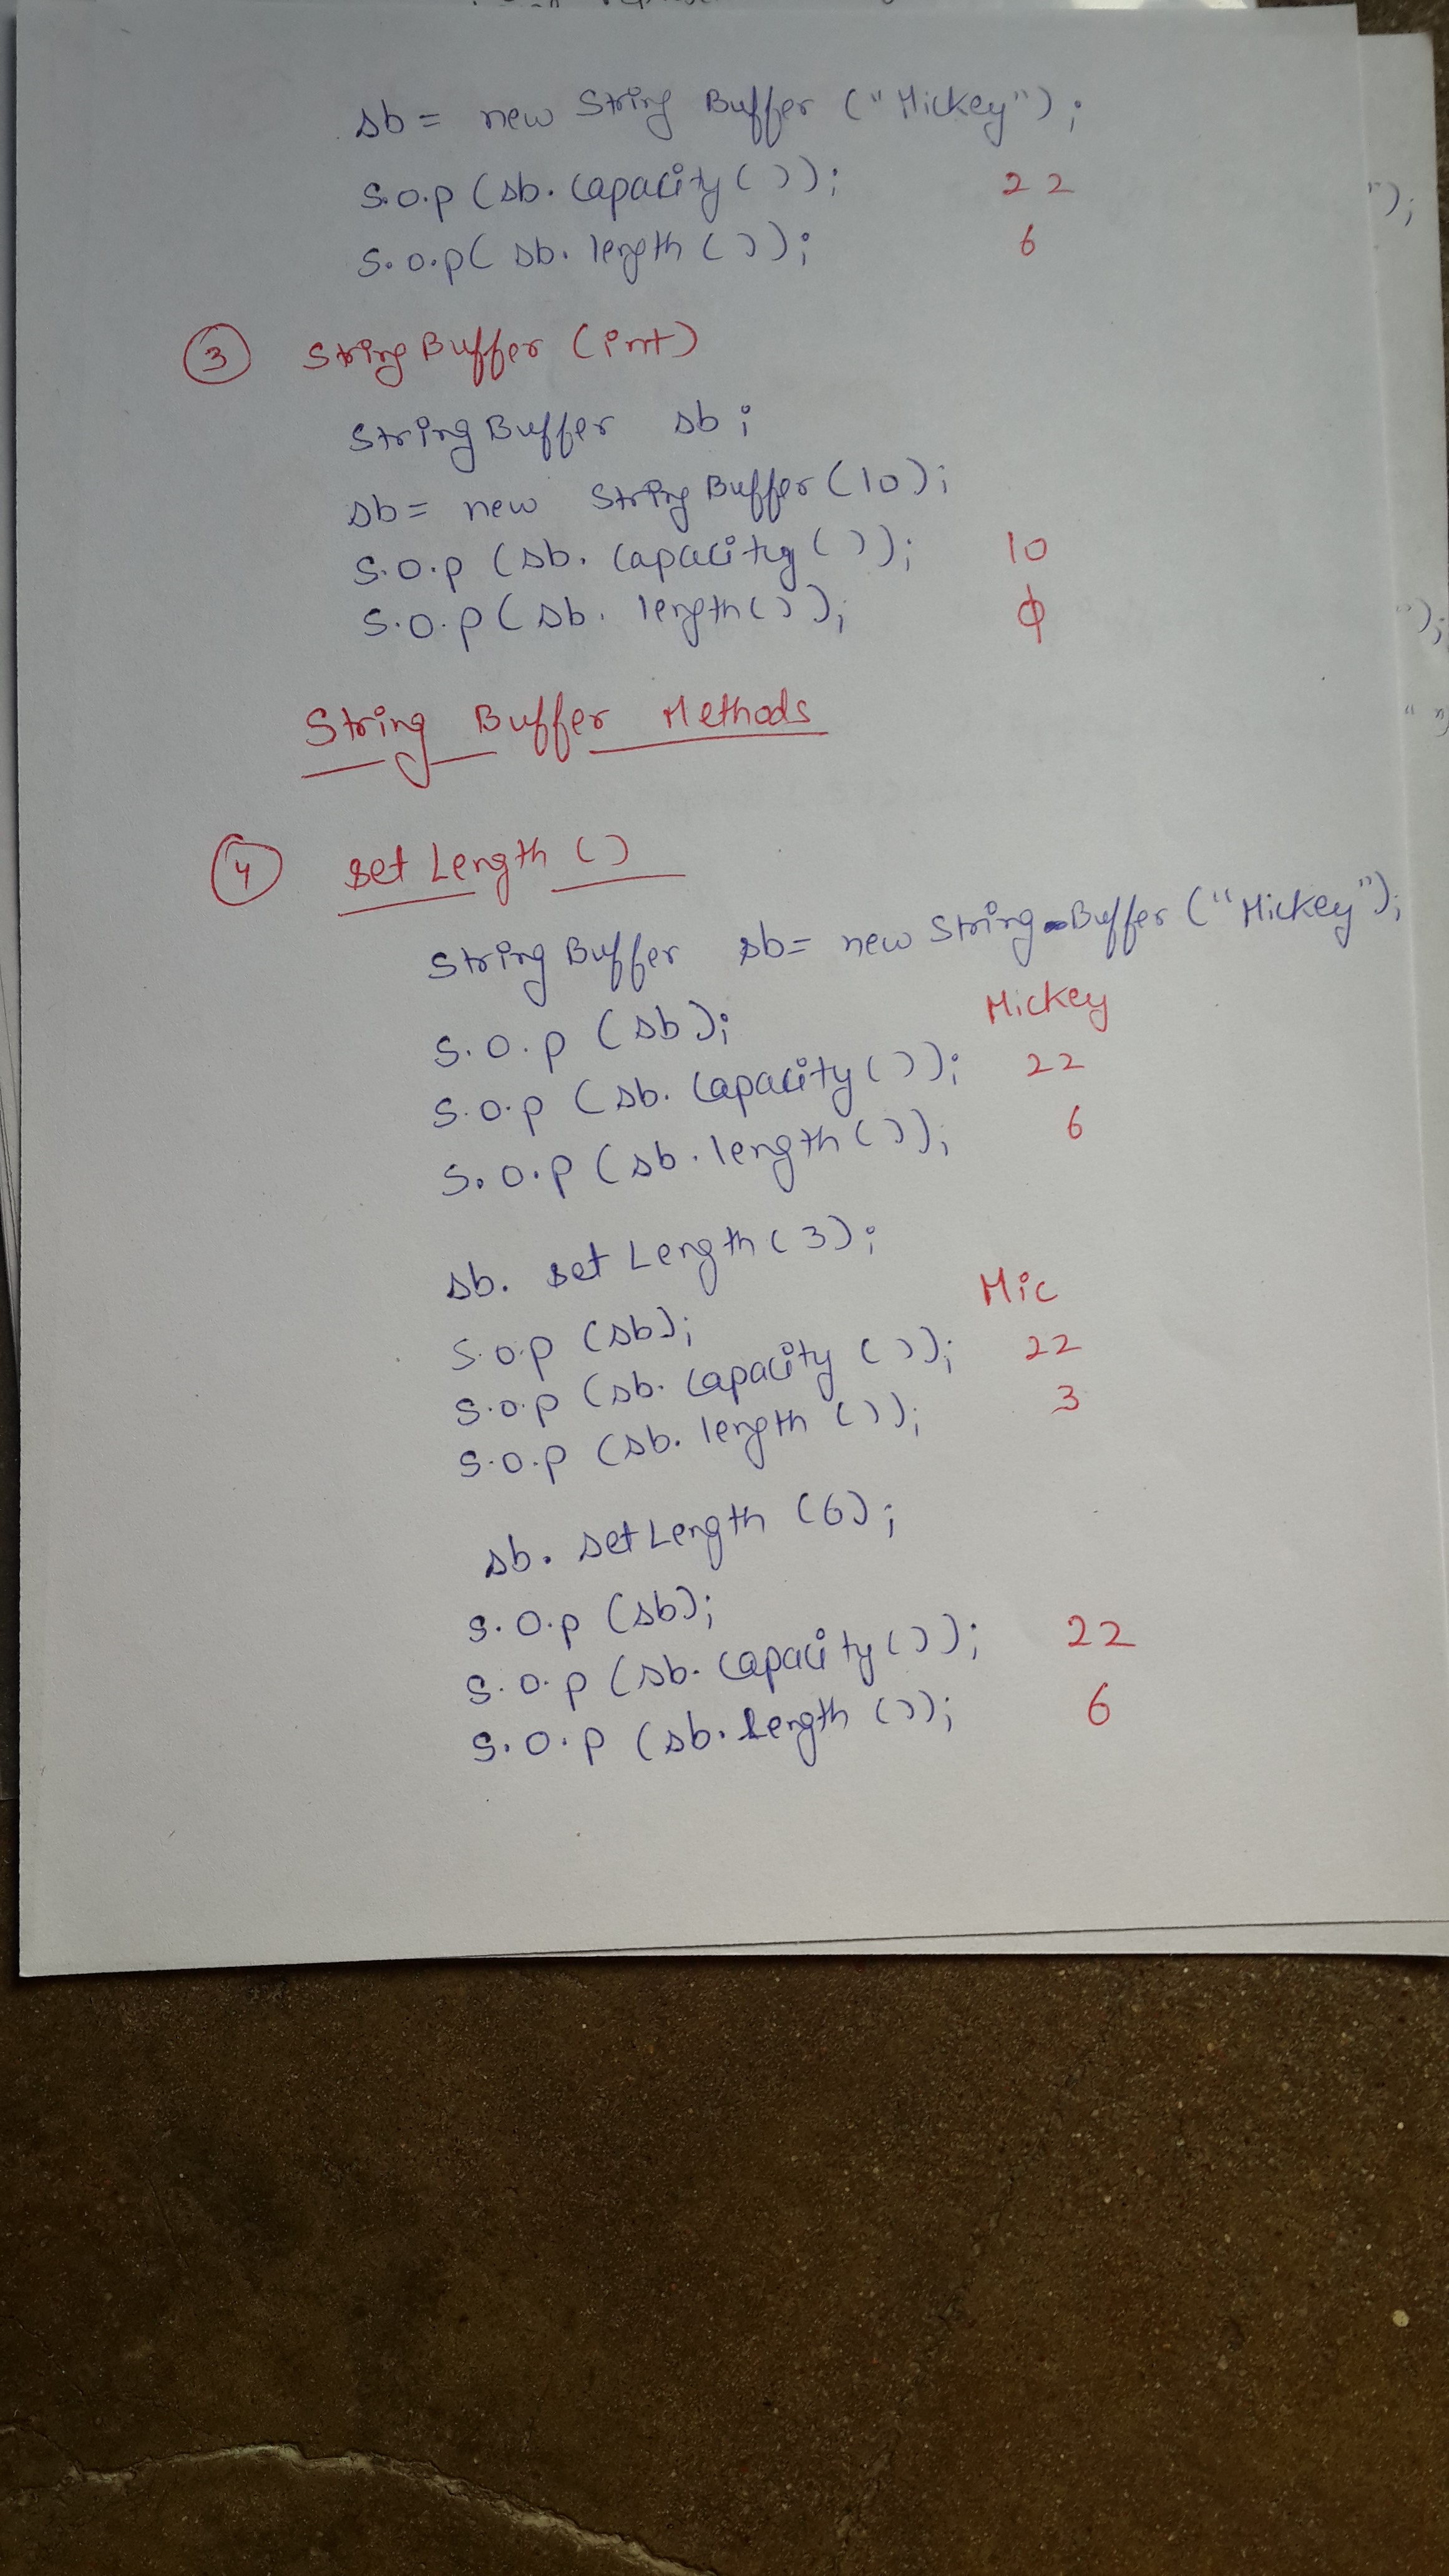 sb = new String Buffer ("Mickey");
S.o.p (sb. capacity ( )); 22
S.o.p( sb. length ( )); 6
③ StringBuffer (int)
StringBuffer sb ;
sb = new StringBuffer (10);
S.o.p (sb. capacity ( )); 10
S.o.p (sb. length( )); ϕ
String Buffer Methods
④ set Length ( )
StringBuffer sb = new String Buffer ("Mickey");
S.o.p (sb); Mickey
S.o.p (sb. capacity ( )); 22
S.o.p (sb. length ( )); 6
sb. set Length ( 3);
S.o.p (sb); Mic
S.o.p (sb. capacity ( )); 22
S.o.p (sb. length ( )); 3
sb. setLength (6);
S.o.p (sb);
S.o.p (sb. capacity ( )); 22
S.o.p (sb. length ( )); 6
");
");